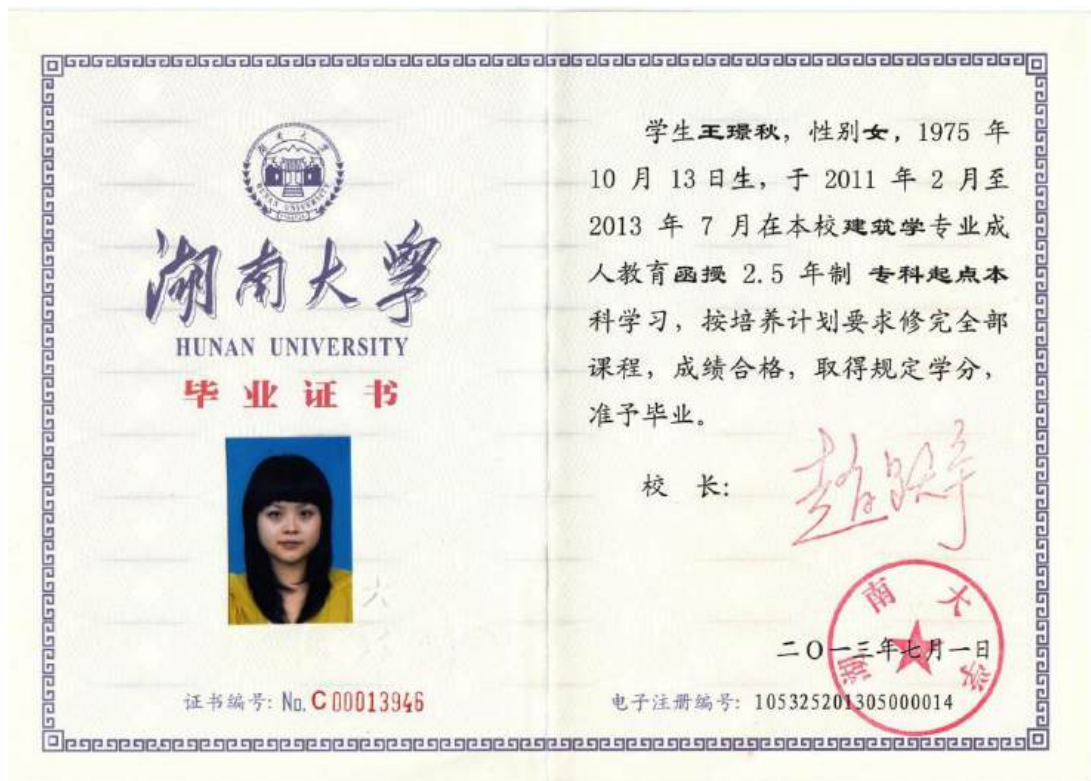 湖南大学
HUNAN UNIVERSITY
湖南大学
HUNAN UNIVERSITY
毕业证书
证书编号: No. C 00013946
学生王璟秋，性别女，1975 年
10 月 13 日生，于 2011 年 2 月至
2013 年 7 月在本校建筑学专业成
人教育函授 2.5 年制 专科起点本
科学习，按培养计划要求修完全部
课程，成绩合格，取得规定学分，
准予毕业。
校 长:
赵跃宇
湖南大学
二〇一三年七月一日
电子注册编号: 105325201305000014